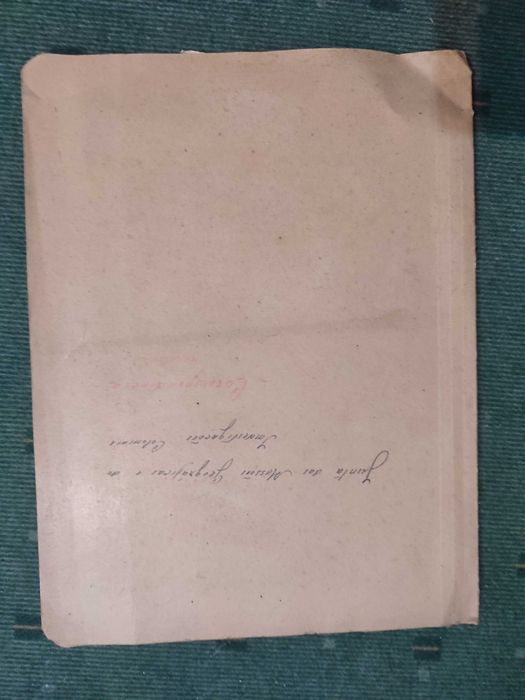 Junta das Missões Geográficas e de
Investigações Coloniais
Correspondência